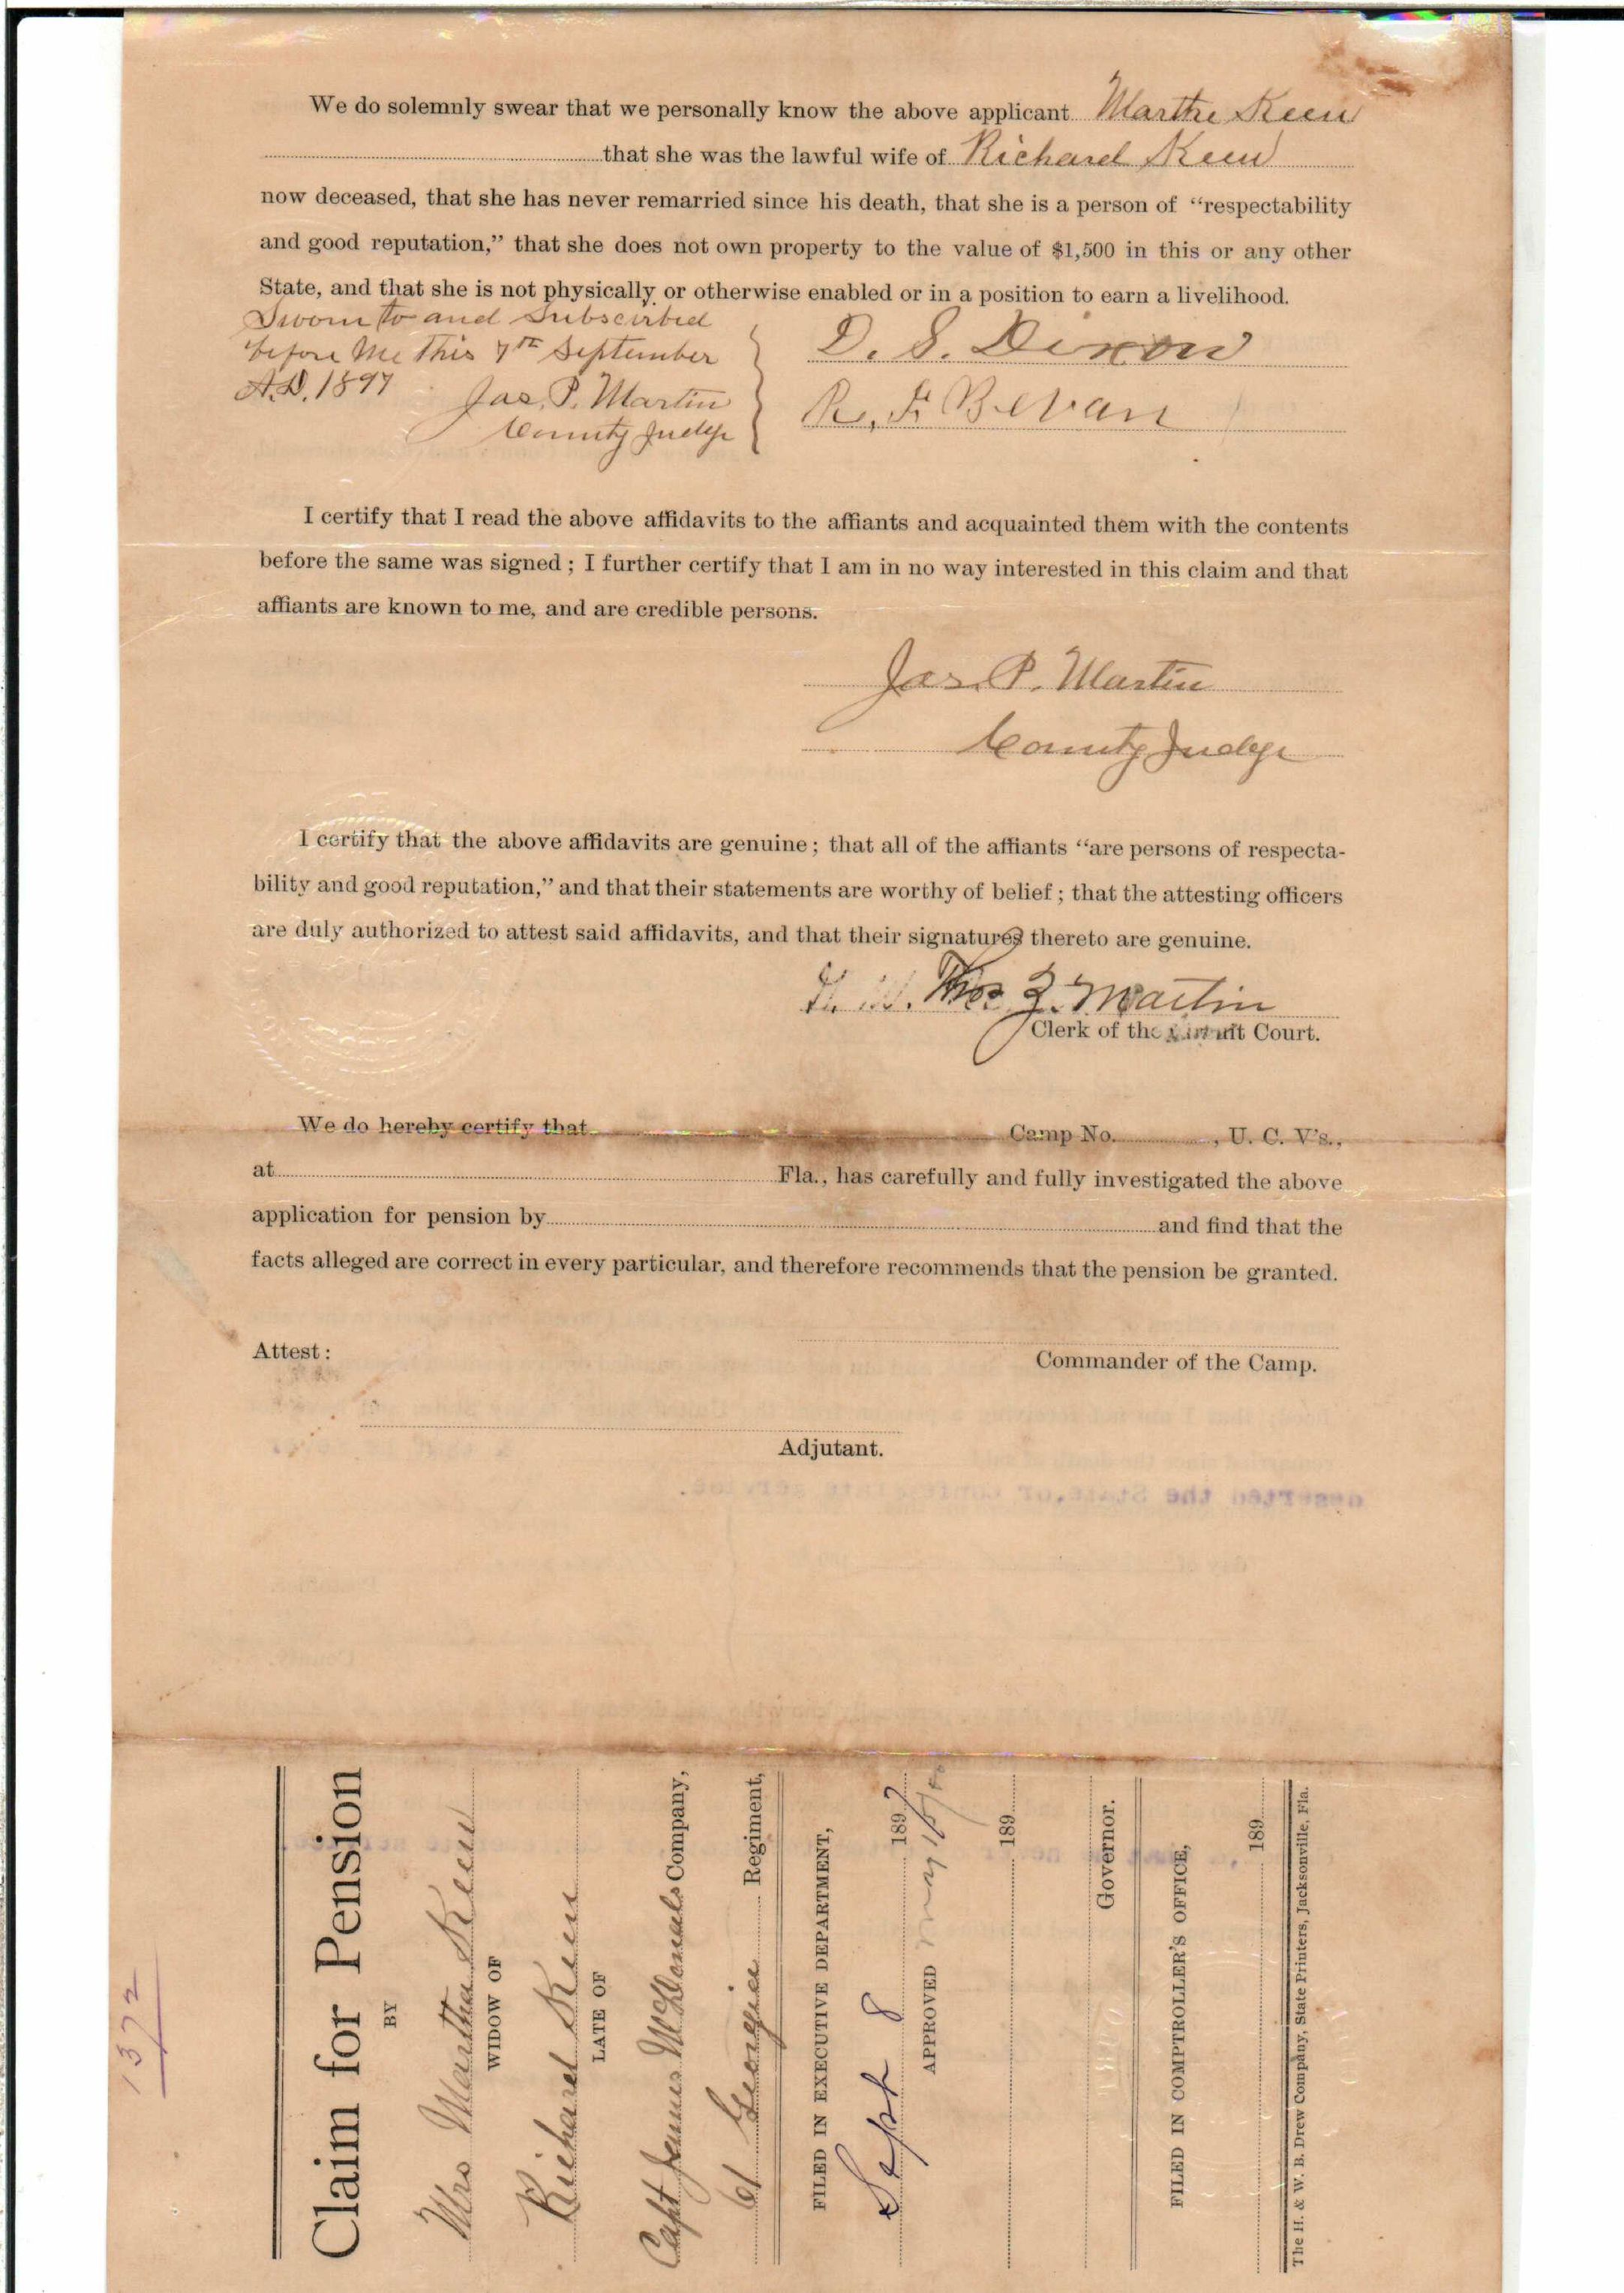 We do solemnly swear that we personally know the above applicant Martha Keen
that she was the lawful wife of Richard Keen
now deceased, that she has never remarried since his death, that she is a person of “respectability
and good reputation,” that she does not own property to the value of $1,500 in this or any other
State, and that she is not physically or otherwise enabled or in a position to earn a livelihood.
Sworn to and Subscribed
before me this 7th September
A.D. 1897
Jas. P. Martin
County Judge
D. S. Dixon
R. F. Bevan
I certify that I read the above affidavits to the affiants and acquainted them with the contents
before the same was signed; I further certify that I am in no way interested in this claim and that
affiants are known to me, and are credible persons.
Jas. P. Martin
County Judge
I certify that the above affidavits are genuine; that all of the affiants “are persons of respecta-
bility and good reputation,” and that their statements are worthy of belief; that the attesting officers
are duly authorized to attest said affidavits, and that their signatures thereto are genuine.
Martin
Clerk of the Circuit Court.
We do hereby certify that Camp No. , U. C. V's.,
at Fla., has carefully and fully investigated the above
application for pension by and find that the
facts alleged are correct in every particular, and therefore recommends that the pension be granted.
Attest:
Commander of the Camp.
Adjutant.
1372
Claim for Pension
BY
Mrs Martha Keen
WIDOW OF
Richard Keen
LATE OF
Capt James McDonals Company,
61 Georgia Regiment,
FILED IN EXECUTIVE DEPARTMENT,
Sept 8 1897
APPROVED May
189
Governor.
FILED IN COMPTROLLER'S OFFICE,
189
The H. & W. B. Drew Company, State Printers, Jacksonville, Fla.